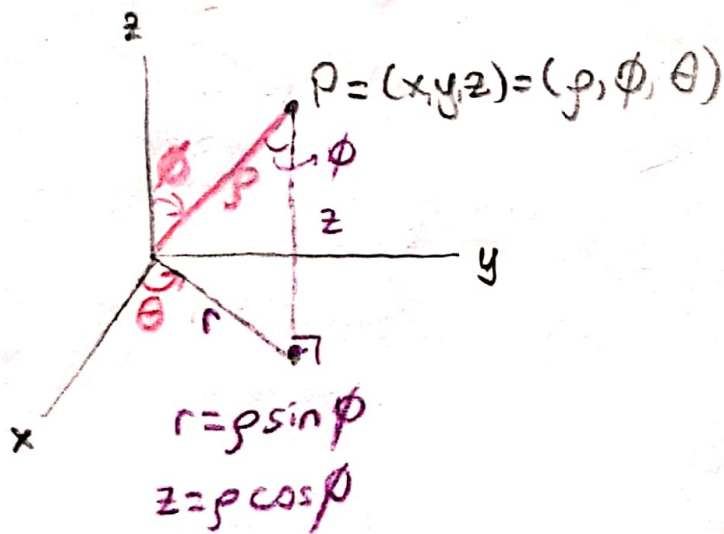 z
P=(x,y,z)=(ρ,ϕ,θ)
ϕ
ϕ
ρ
z
y
θ
r
x
r=ρsinϕ
z=ρcosϕ